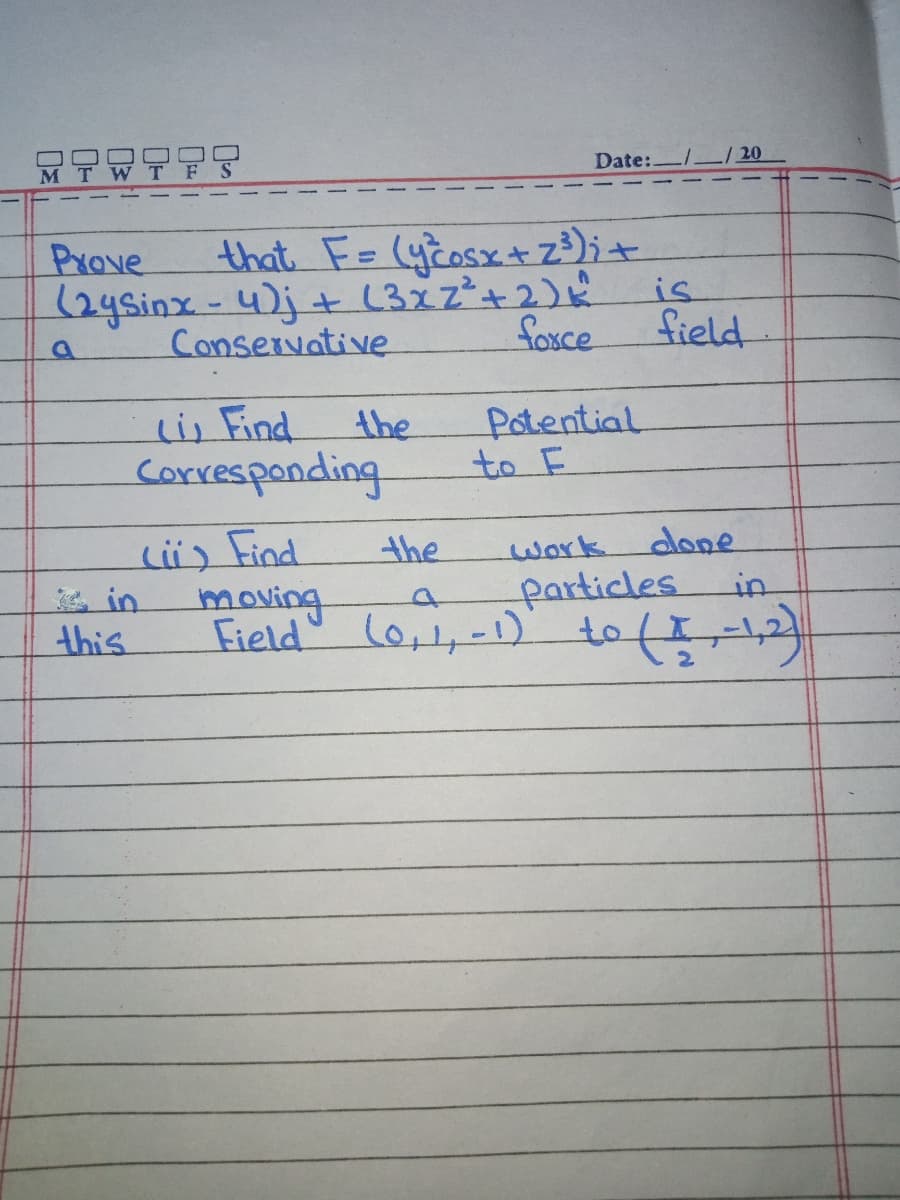 M T W T F S
Date: __/__/ 20
Prove that F = (y²cosx + z³)i +
(2ysinx - 4)j + (3xz² + 2)k̂ is
a Conservative force field.
(i) Find the Potential
Corresponding to F
(ii) Find the work done
in moving a particles in
this Field (0, 1, -1) to (π/2, -1, 2)